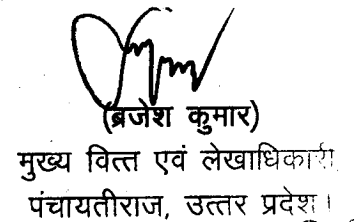 (ब्रजेश कुमार)
मुख्य वित्त एवं लेखाधिकारी
पंचायतीराज, उत्तर प्रदेश।